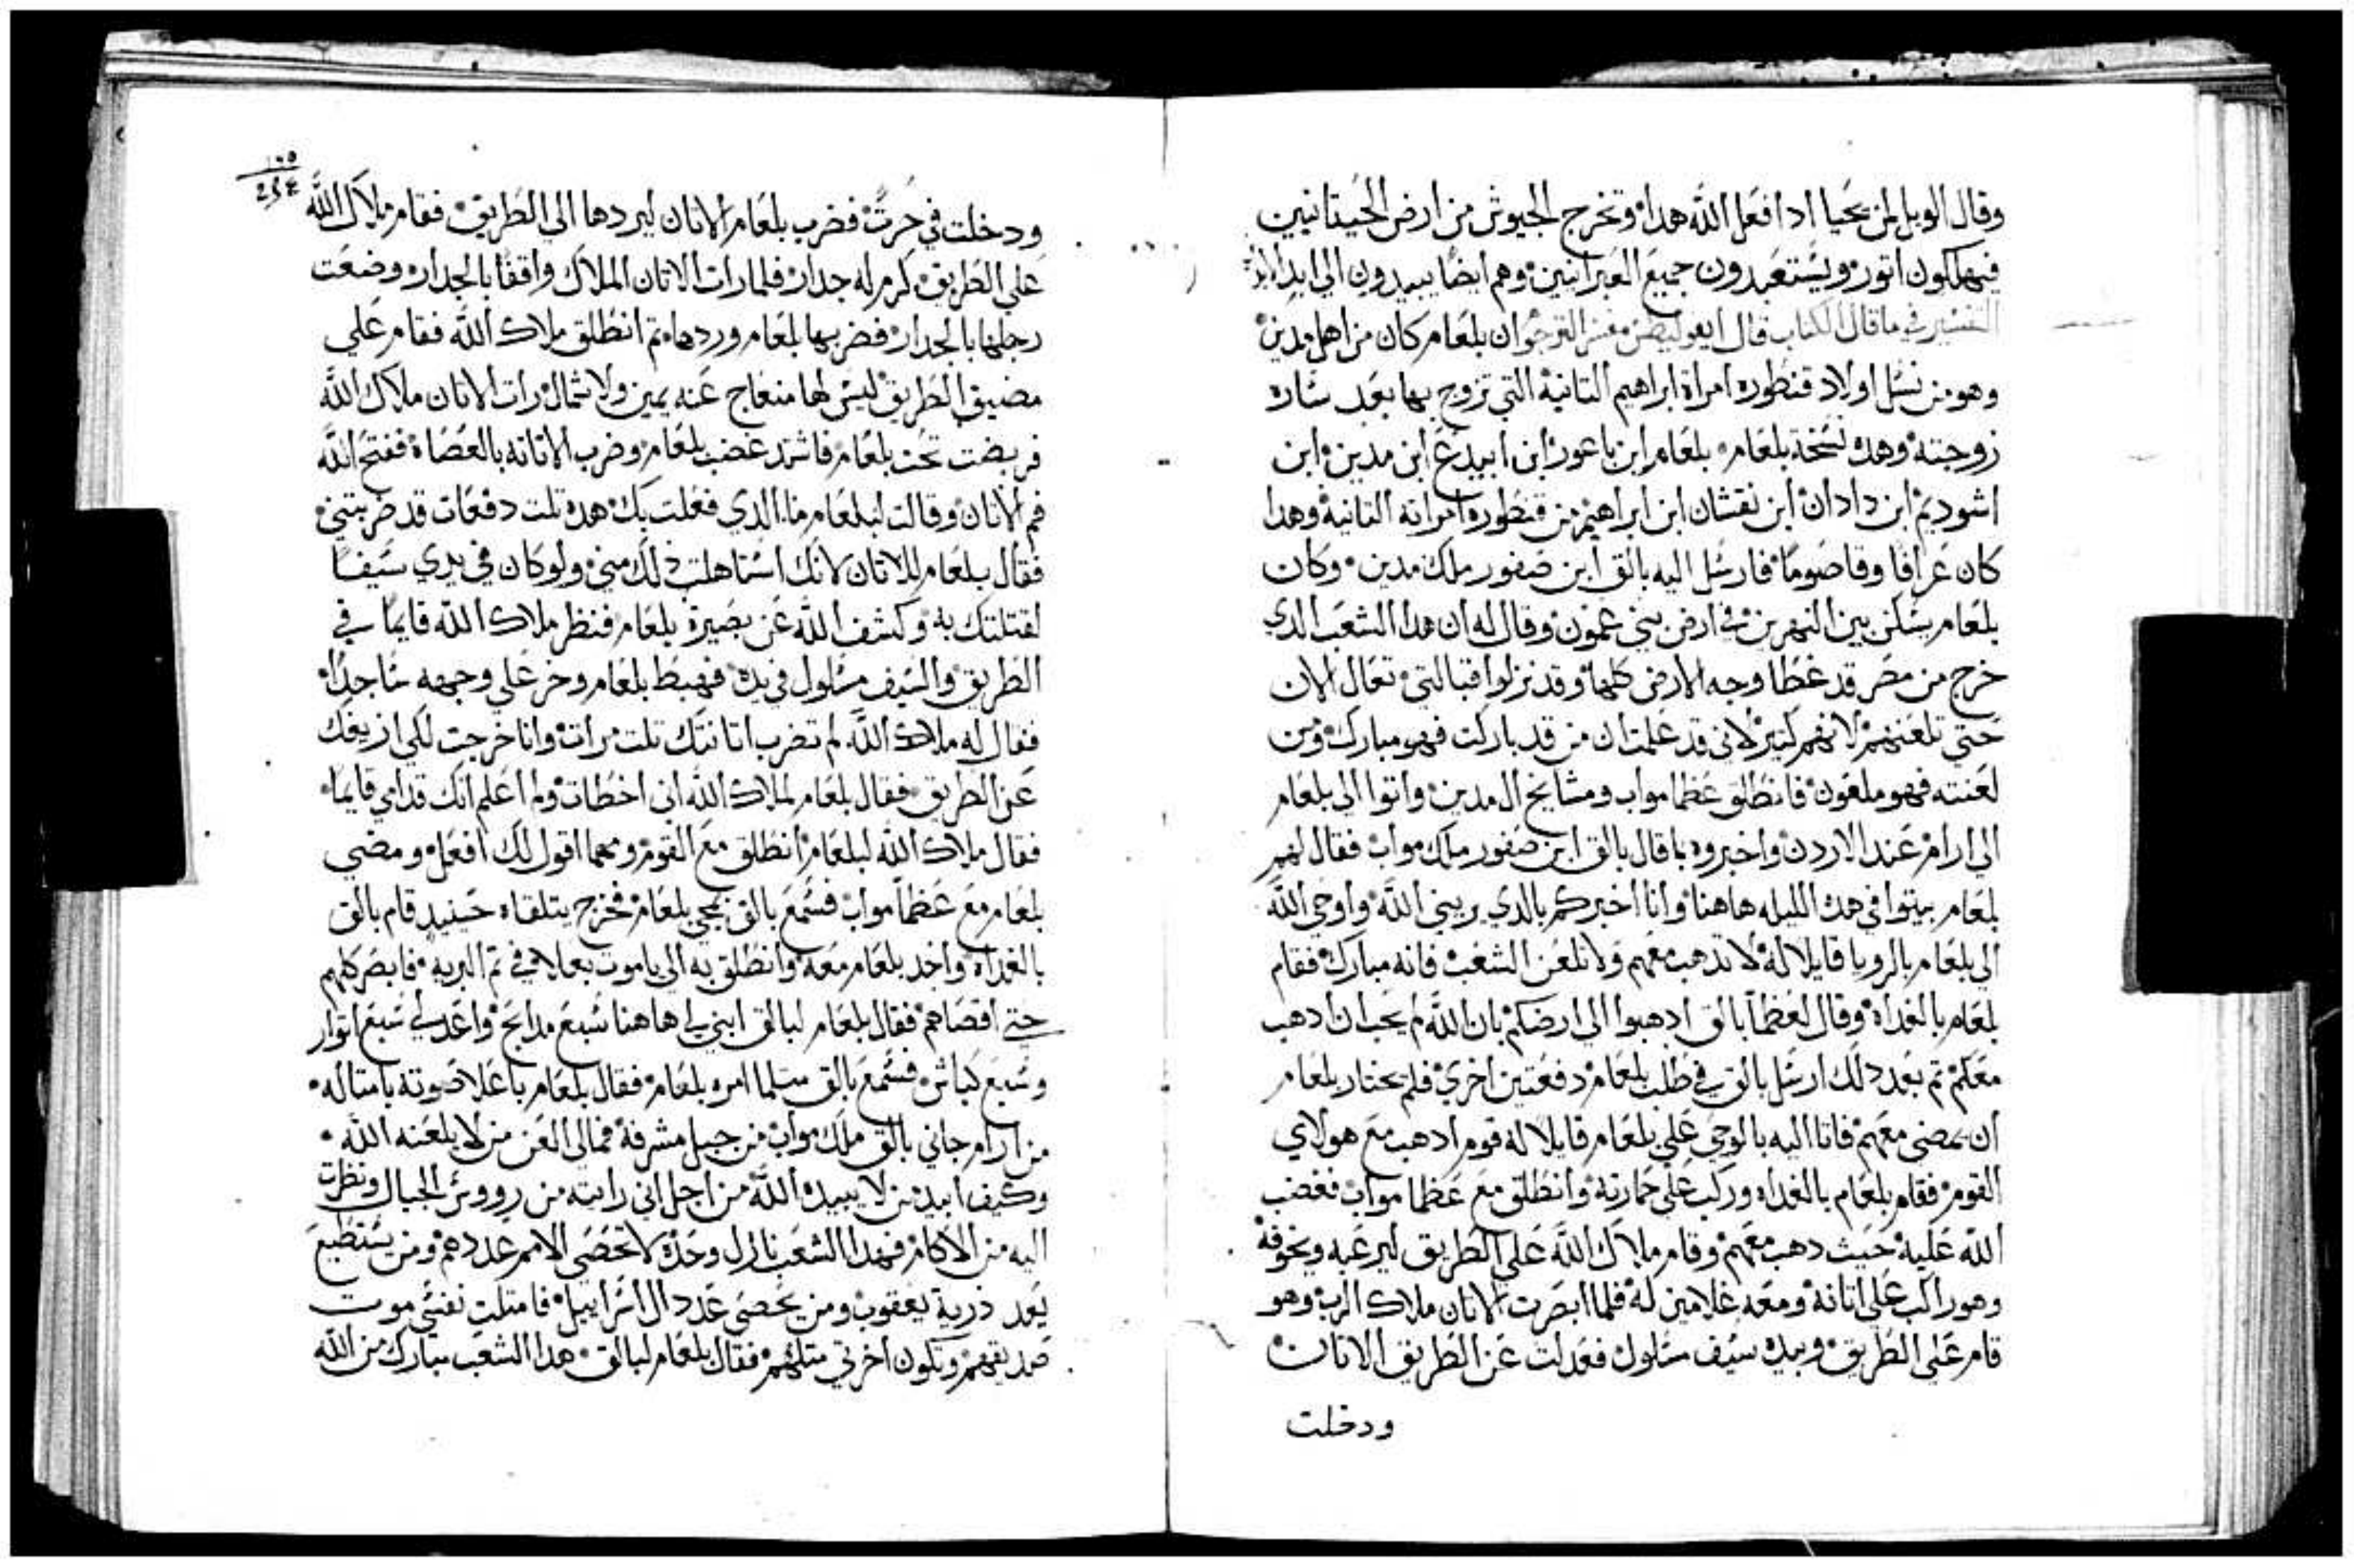 وقال الويل لمن يحيا ادا فعل الله هدا وتخرج الجيوش من ارض الحيتانيين
فيهلكون اتور ويستعبدون جميع العبرانيين وهم ايضا يبيدون الي ابد الابد
التفسير في ما قال الكتاب قال ايبوليطس مفسر الترجوم ان بلعام كان من اهل مدين
وهو من نسل اولاد قنطوره امراة ابراهيم التانية التي تزوج بها بعد ساره
زوجته وهده نسخة بلعام بلعام ابن باعور ابن ابيدع ابن مدين ابن
اشوديم ابن دادان ابن نقشان ابن ابراهيم من قنطوره امراته التانية وهدا
كان عرافا وقاصوما فارسل اليه بالق ابن صفور ملك مدين وكان
بلعام يسكن بين النهرين في ارض بني عمون وقال له ان هدا الشعب الدي
خرج من مصر قد غطا وجه الارض كلها وقد نزلوا قبالتي تعال الان
حتي تلعنهم لانهم كتير لاني قد علمت ان من قد باركت فهو مبارك ومن
لعنته فهو ملعون فانطلق عظما مواب ومشايخ ال مدين واتوا الي بلعام
الي ارام عند الاردن واخبروه بما قال بالق ابن صفور ملك مواب فقال لهم
بلعام بيتوا في هده الليله هاهنا وانا اخبركم بالدي يريني الله واوحي الله
الي بلعام بالرويا قايلا له لا تدهب معهم ولا تلعن الشعب فانه مبارك فقام
بلعام بالغداه وقال لعظما بالق ادهبوا الي ارضكم بان الله لم يحب ان ادهب
معكم تم بعد دلك ارسل بالق في طلب بلعام دفعتين اخري فلم يختار بلعام
ان يمضي معهم فاتا اليه بالوحي علي بلعام قايلا له قوم ادهب مع هولاي
القوم فقام بلعام بالغداه وركب علي حمارته وانطلق مع عظما مواب فغضب
الله عليه حيث دهب معهم وقام ملاك الله علي الطريق ليرعبه ويخوفه
وهو راكب علي اتانة ومعه غلامين له فلما ابصرت الاتان ملاك الرب وهو
قام علي الطريق وبيده سيف مسلول فعدلت عن الطريق الاتان
ودخلت
١٠٥
234
ودخلت في حرث فضرب بلعام الاتان ليردها الي الطريق فقام ملاك الله
علي الطريق كرم له جدار فلما رات الاتان الملاك واقفا بالجدار وضعت
رجلها بالجدار فضربها بلعام وردها تم انطلق ملاك الله فقام علي
مضيق الطريق ليس لها منعاج عنه يمين ولا شمال رات الاتان ملاك الله
فربضت تحت بلعام فاشتد غضب بلعام وضرب الاتانه بالعصاة ففتح الله
فم الاتان وقالت لبلعام ما الدي فعلت بك هده تلت دفعات قد ضربتني
فقال بلعام للاتان لانك استاهلت ذلك مني ولو كان في يدي سيفا
لقتلتك به وكشف الله عن بصيرة بلعام فنظر ملاك الله قايما في
الطريق والسيف مسلول في يده فهبط بلعام وخر علي وجهه ساجدا
فقال له ملاك الله لم تضرب اتانتك تلت مرات وانا خرجت لكي ازيغك
عن الطريق فقال بلعام لملاك الله اني اخطات ولم اعلم انك قدامي قايما
فقال ملاك الله لبلعام انطلق مع القوم ومهما اقول لك افعل ومضي
بلعام مع عظما مواب فسمع بالق بمجي بلعام فخرج يتلقاه حينيد قام بالق
بالغداة واخد بلعام معه وانطلق به الي ياموت بعلا في تم البريه فابصر كلهم
حتي اقصاهم فقال بلعام لبالق ابني لي هاهنا سبع مدابح واعد لي سبع اتوار
وسبع كباش فسمع بالق سلما امره بلعام فقال بلعام باعلا صوته بامتاله
من ارام جاني بالق ملك مواب من جبل مشرفة فمالي العن من لا يلعنه الله
وكيف ابيد من لا يبيده الله من اجل اني رايته من رووش الجبال ونظرت
اليه من الاكام فهدا الشعب نازل وحده لا تحصي الامم عددهم ومن يستطيع
يعد ذرية يعقوب ومن يحصي عدد ال اسراييل فامتلت نفسي موت
صديقهم وتكون اخرتي متلهم فقال بلعام لبالق هدا الشعب مبارك من الله